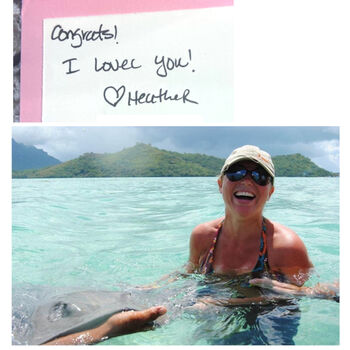 Congrats!
I Love You!
♡ Heather